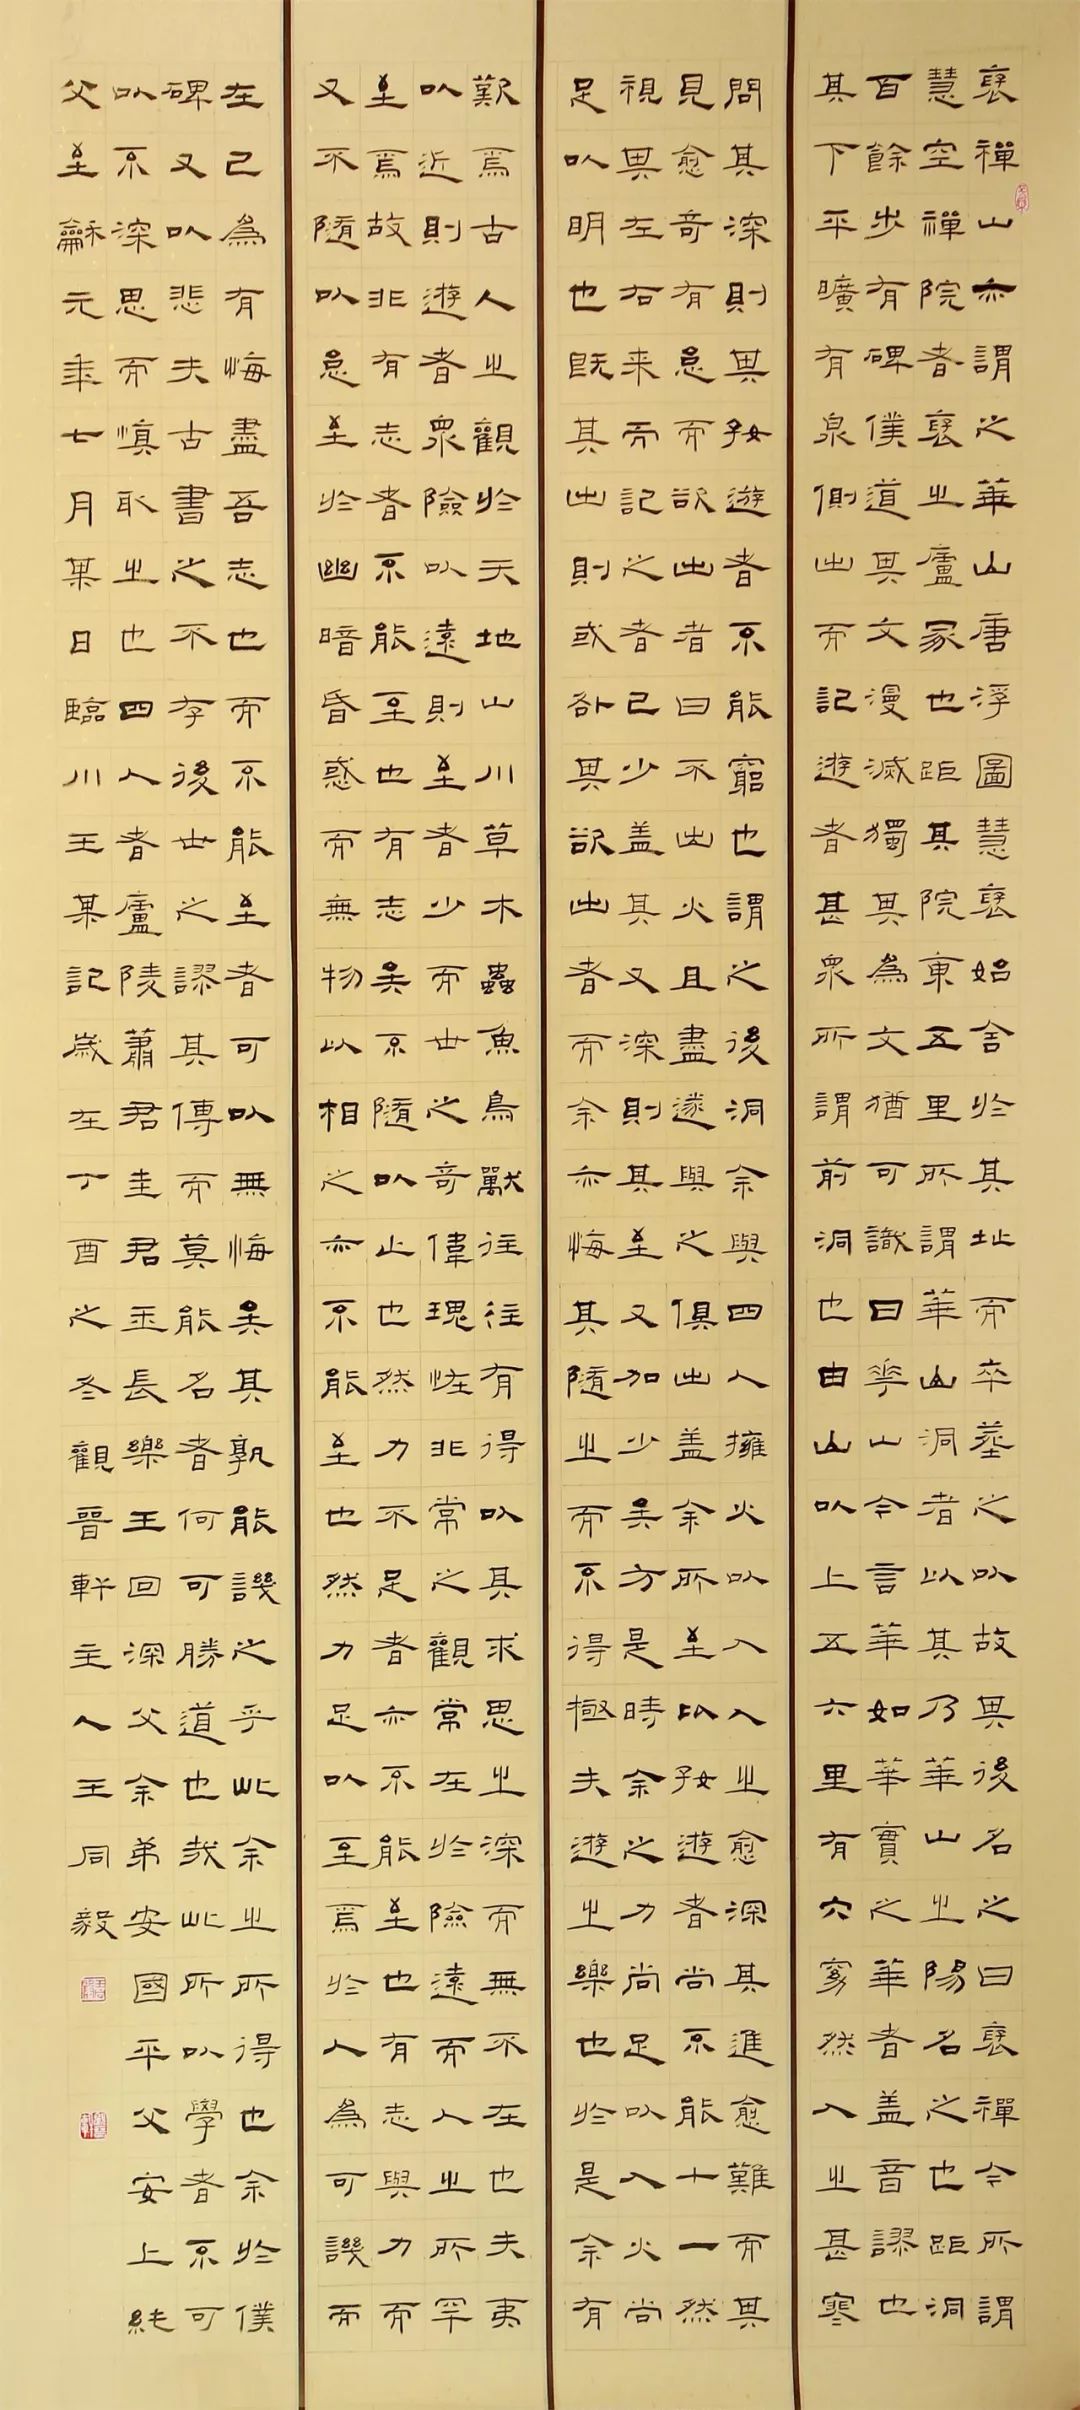 褒禪山亦謂之華山唐浮圖慧褒始舍於其址而卒葬之以故其後名之曰褒禪今所謂
慧空禪院者褒之廬冢也距其院東五里所謂華山洞者以其乃華山之陽名之也距洞
百餘步有碑僕道其文漫滅獨其為文猶可識曰花山今言華如華實之華者盖音謬也
其下平曠有泉側出而記遊者甚眾所謂前洞也由山以上五六里有穴窈然入之甚寒
問其深則其好遊者不能窮也謂之後洞余與四人擁火以入入之愈深其進愈難而其
見愈奇有怠而欲出者曰不出火且盡遂與之俱出盖余所至以好遊者尚不能十一然
視其左右来而記之者已少盖其又深則其至又加少矣方是時余之力尚足以入火尚
足以明也既其出則或咎其欲出者而余亦悔其隨之而不得極夫遊之樂也於是余有
歎焉古人之觀於天地山川草木蟲魚鳥獸往往有得以其求思之深而無不在也夫夷
以近則遊者眾險以遠則至者少而世之奇偉瑰怪非常之觀常在於險遠而人之所罕
至焉故非有志者不能至也有志矣不隨以止也然力不足者亦不能至也有志與力而
又不隨以怠至於幽暗昏惑而無物以相之亦不能至也然力足以至焉於人為可譏而
在己為有悔盡吾志也而不能至者可以無悔矣其孰能譏之乎此余之所得也余於僕
碑又以悲夫古書之不存後世之謬其傳而莫能名者何可勝道也哉此所以學者不可
以不深思而慎取之也四人者廬陵蕭君圭君玉長樂王回深父余弟安國平父安上純
父至龢元年七月某日臨川王某記歲在丁酉之冬觀晉軒主人王同毅